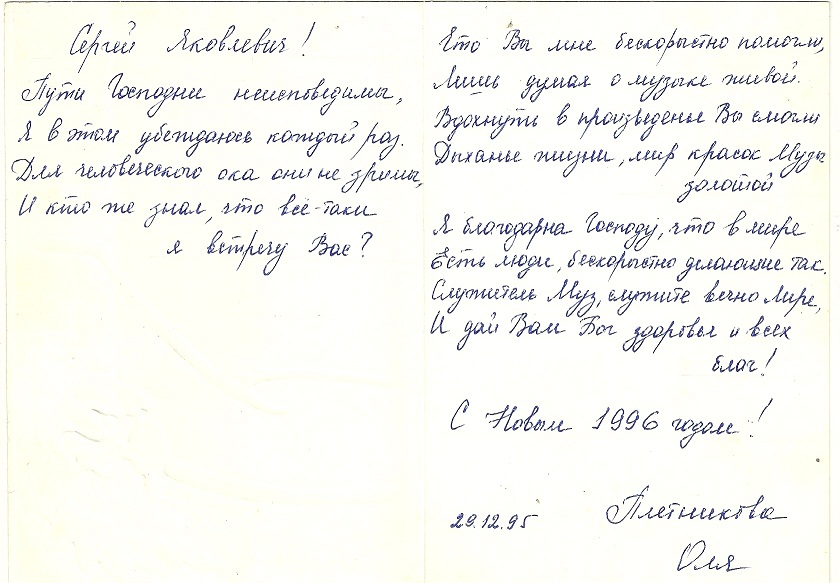 Сергей Яковлевич!
Пути Господни неисповедимы,
Я в этом убеждаюсь каждый раз.
Для человеческого ока они не зримы,
И кто же знал, что всё-таки
я встречу Вас?
Что Вы мне бескорыстно помогли,
Лишь думая о музыке живой.
Вдохнуть в произведенье Вы смогли
Дыханье жизни, мир красок Музы
золотой
Я благодарна Господу, что в мире
Есть люди, бескорыстно делающие так.
Служитель Муз, служите вечно Лире,
И дай Вам Бог здоровья и всех
благ!
С Новым 1996 годом!
29.12.95
Плетникова
Оля